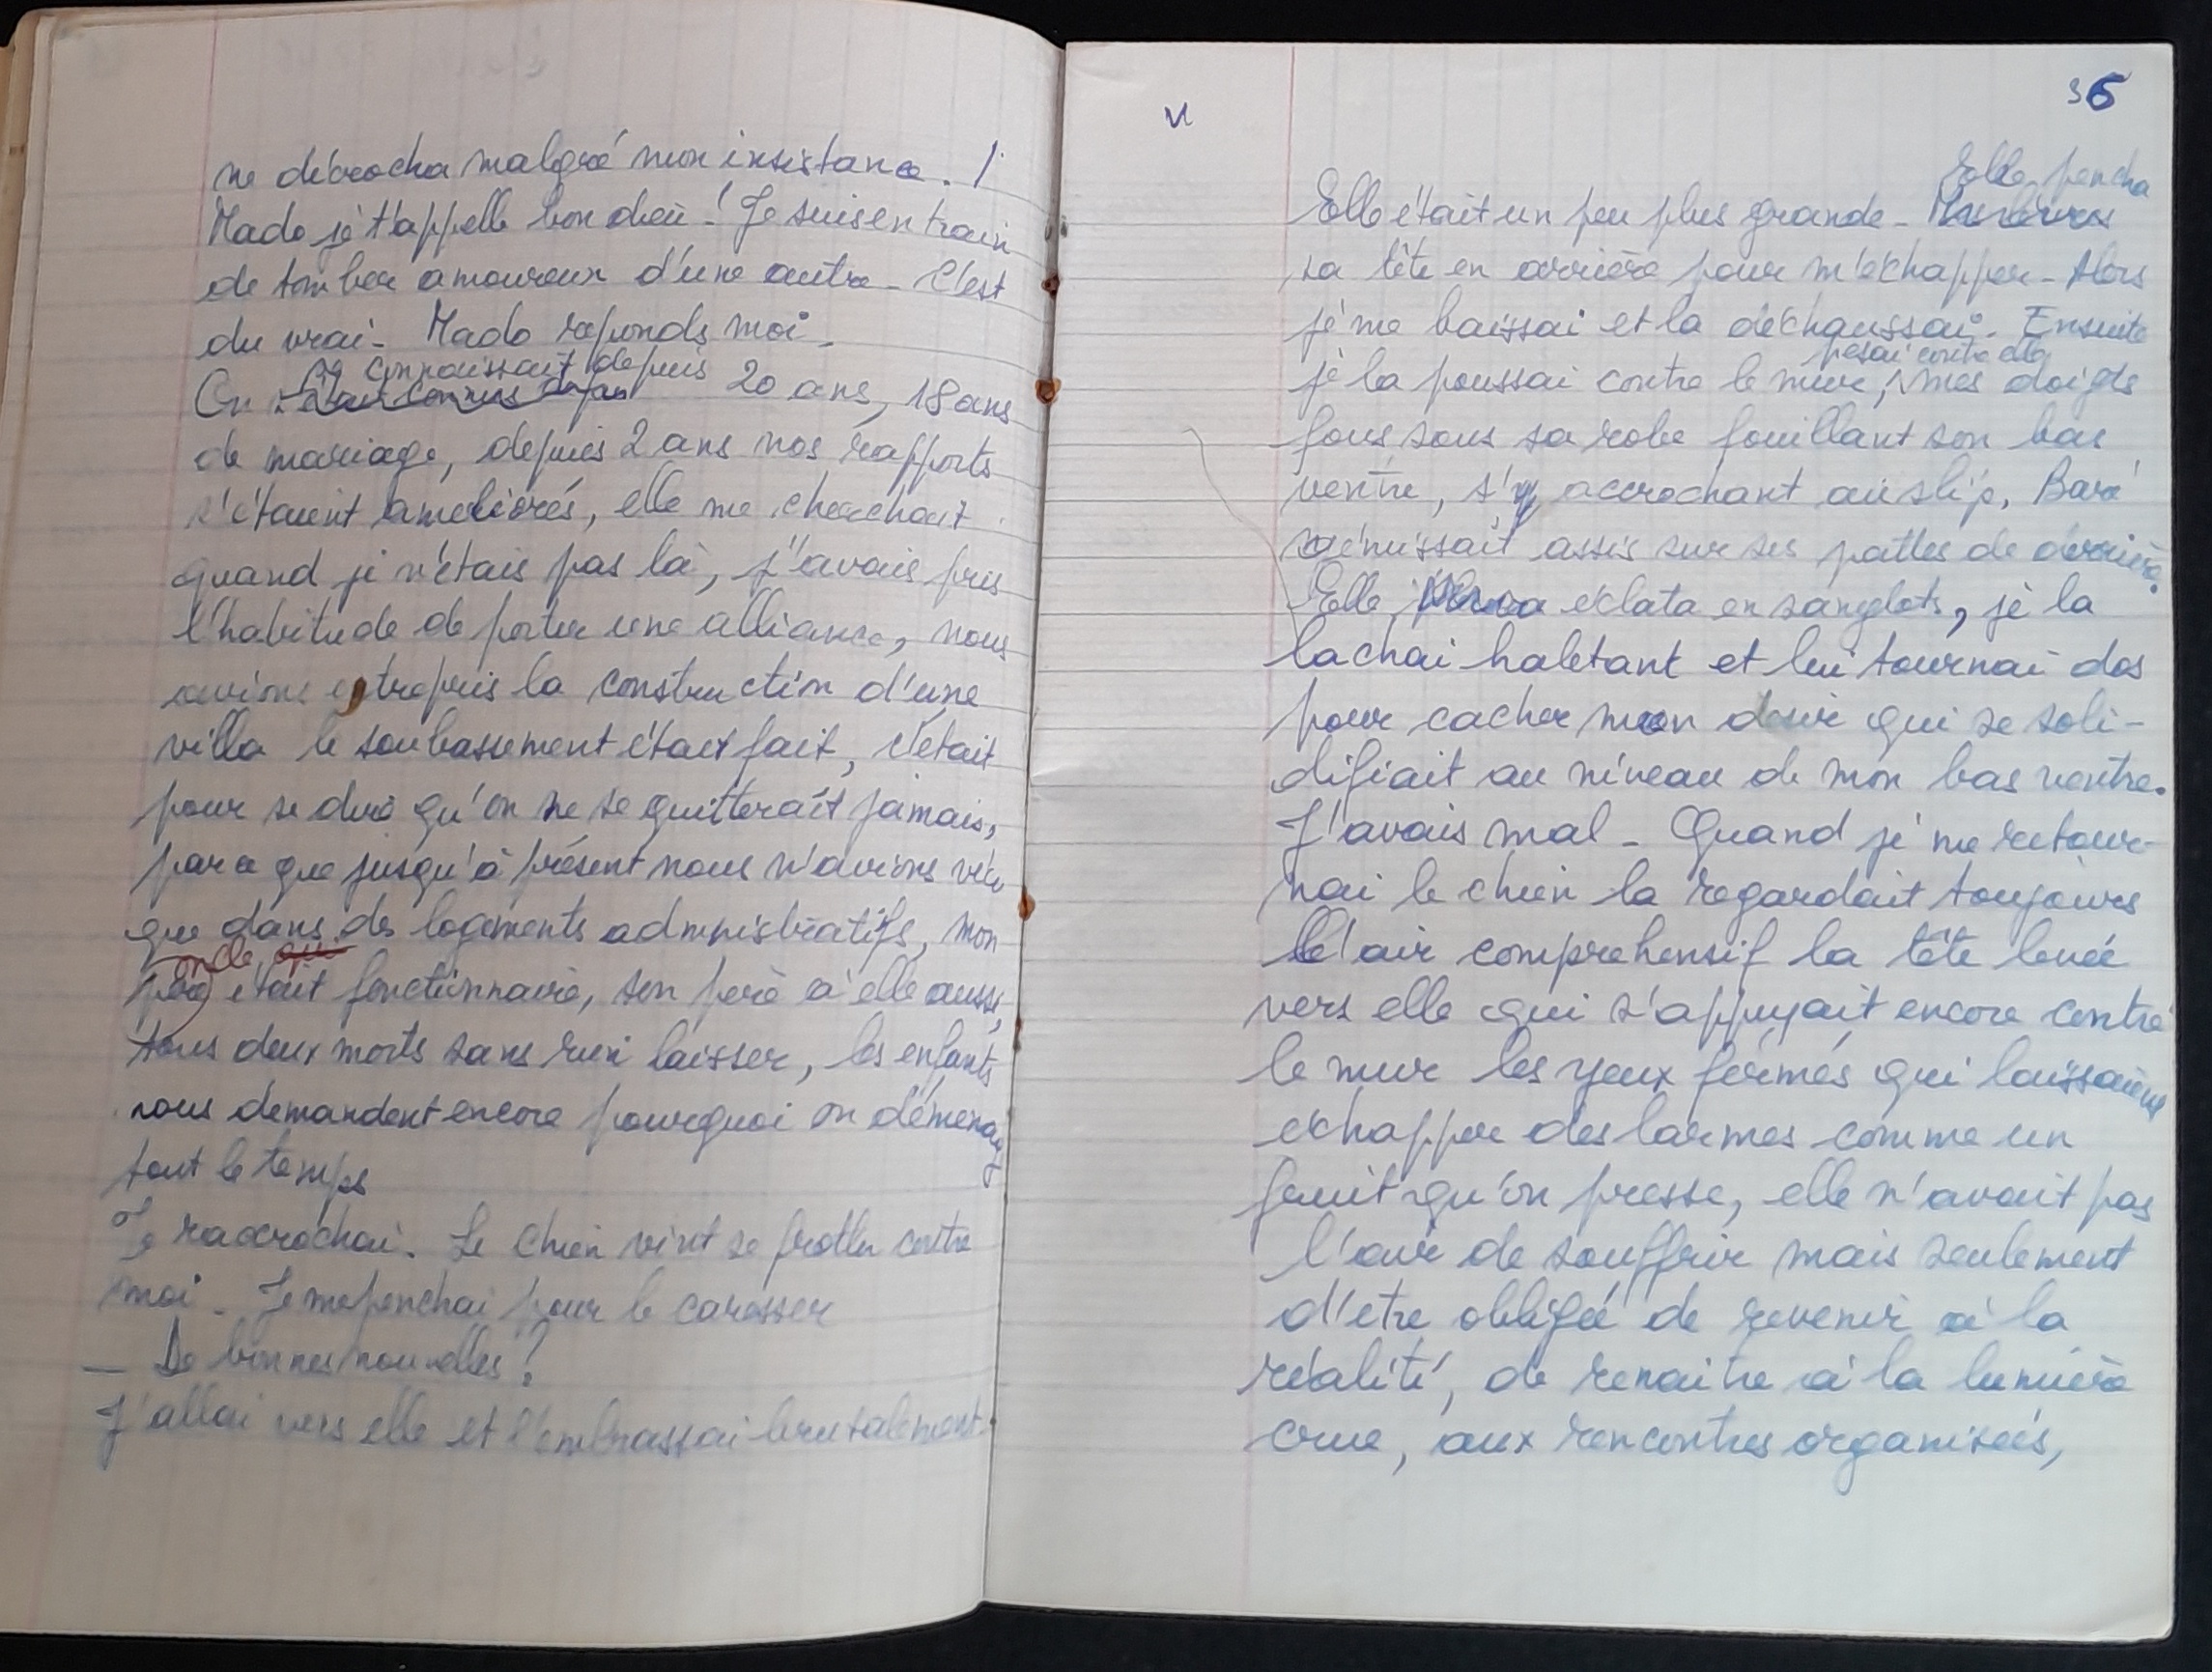 ne décrocha malgré mon insistance. /
Mado je t'appelle bon dieu ! Je suis en train
de tomber amoureux d'une autre - C'est
du vrai - Mado reponds moi -
se connaissait depuis
On 20 ans, 18 ans
de mariage, depuis 2 ans nos rapports
s'étaient ameliorés, elle me cherchait
quand je n'étais pas là, j'avais pris
l'habitude de porter une alliance, nous
avions entrepris la construction d'une
villa le soubassement était fait, c'était
pour se dire qu'on ne se quitterait jamais,
parce que jusqu'à présent nous n'avions vécu
que dans des logements administratifs, mon
oncle qui
père était fonctionnaire, son père à elle aussi,
tous deux morts sans rien laisser, les enfants
nous demandent encore pourquoi on démenag
tout le temps
Je raccrochai. Le chien vint se frotter contre
moi - Je me penchai pour le caresser
— De bonnes nouvelles ?
J'allai vers elle et l'embrassai brutalement
36
VI
Elle pencha
Elle était un peu plus grande - Mes lèvres
sa tête en arrière pour m'échapper - Alors
je me baissai et la déchaussai. Ensuite
pesai contre elle
je la poussai contre le mur, mes doigts
fous sous sa robe fouillant son bas
ventre, s'y accrochant au slip, Baré
gémissait assis sur ses pattes de derrière.
Elle éclata en sanglots, je la
lachai haletant et lui tournai dos
pour cacher mon desir qui se soli-
difiait au niveau de mon bas ventre.
J'avais mal - Quand je me retour-
nai le chien la regardait toujours
l'air comprehensif la tête levée
vers elle qui s'appuyait encore contre
le mur les yeux fermés qui laissaient
échapper des larmes comme un
fruit qu'on presse, elle n'avait pas
l'air de souffrir mais seulement
d'etre obligée de revenir à la
réalité, de renaitre à la lumière
crue, aux rencontres organisées,